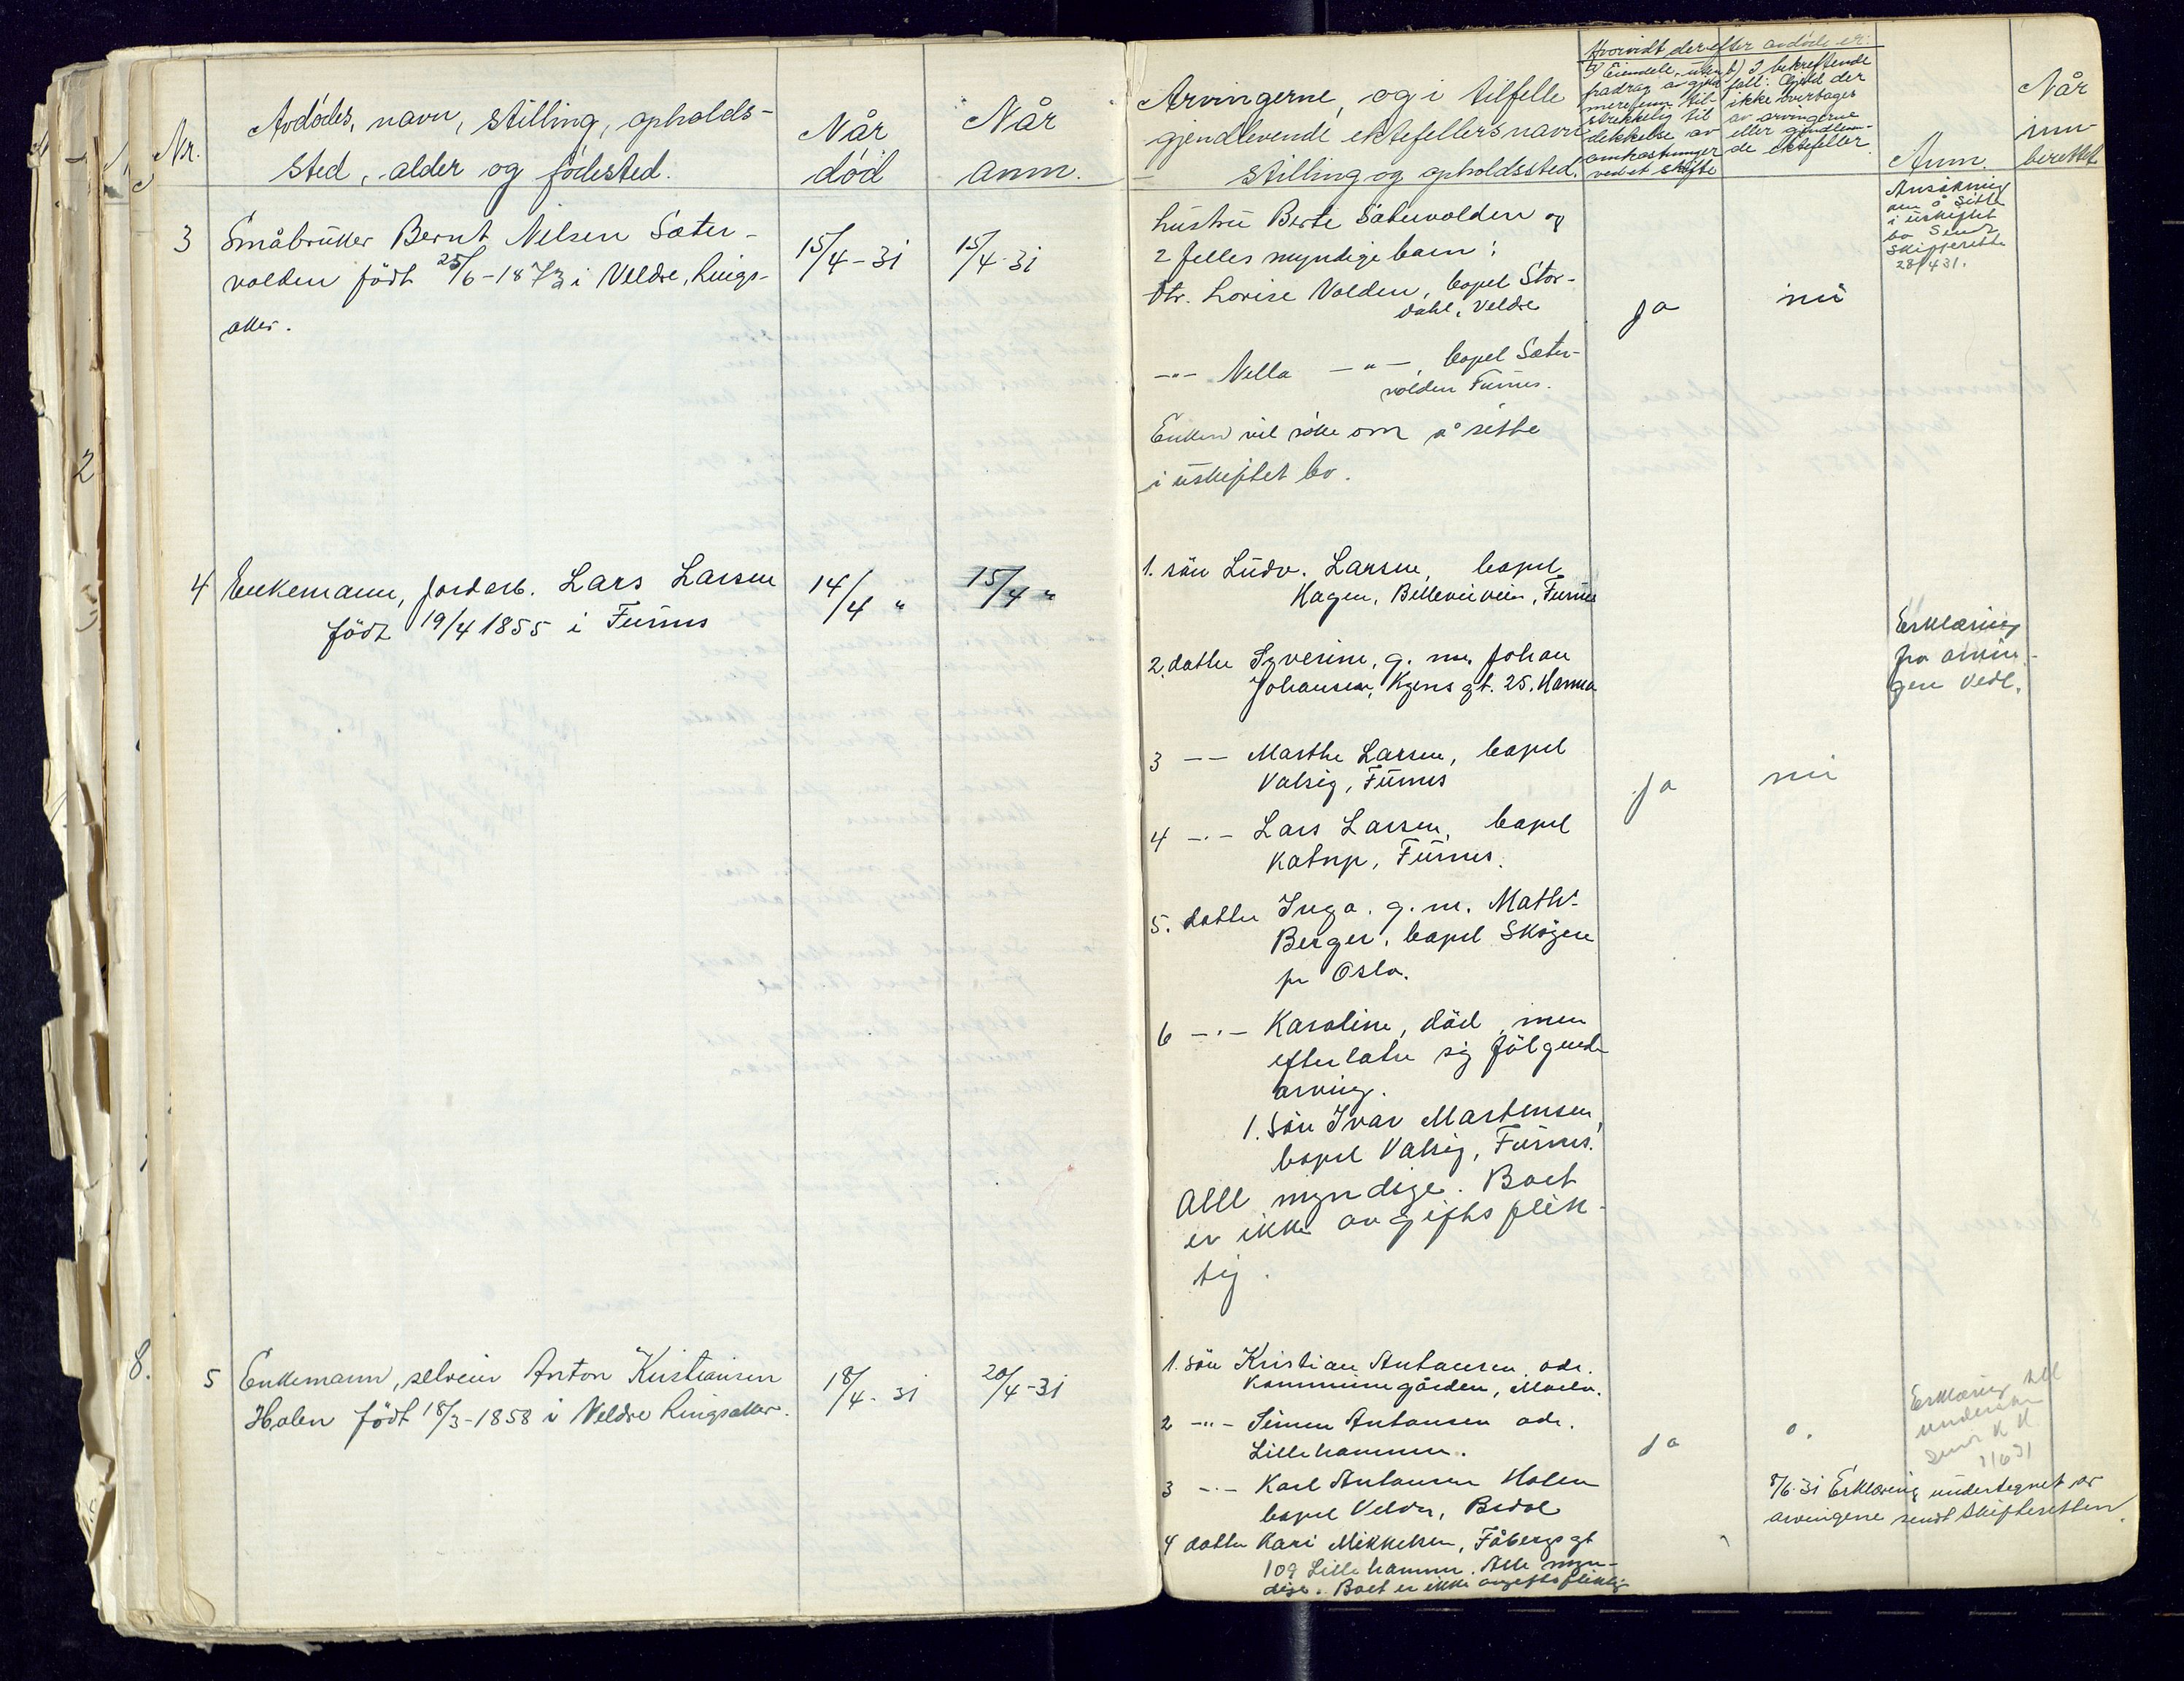 Nr.
Avdødes, navn, stilling, opholds-
sted, alder og fødested.
Når
død
Når
anm.
3
Småbruker Bernt Nilsen Sæter-
volden født 25/6-1873 i Veldre, Rings-
aker.
15/4-31
15/4-31
4
Enkemann, jordarb. Lars Larsen
født 19/4 1855 i Furnes
14/4 "
15/4 "
8.
5
Enkemann, selveier Anton Kristiansen
Holen født 18/3-1858 i Veldre Ringsaker.
18/4-31
20/4-31
2
Arvingerne, og i tilfelle
gjenlevende ektefellers navn
stilling og opholdssted.
Hvorvidt derefter avdøde er:
a) Eiendele, uten
fradrag av gjeld
mere enn til-
strekkelig til
dekkelse av
omkostninger
ved et skifte
b) I bekreftende
fall: Gjeld der
ikke overtages
av arvingerne
eller gjenleven-
de ektefeller
Anm.
Når
inn-
berettet
hustru Berte Sætervolden og
2 felles myndige barn:
dtr. Lovise Volden, bopel Stor-
dahl, Veldre
-"- Nella -"-, bopel Sæter-
volden Furnes.
Enken vil søke om å sitte
i uskiftet bo.
ja
nei
Ansøkning
om å sitte
i uskiftet
bo sendt
Skifteretten
28/4 31.
1. søn Ludv. Larsen, bopel
Hagen, Bellevueveien, Furnes
2. datter Syverine, g. m. Johan
Johansen, Kyens gt. 25. Hamar
3 -- Marthe Larsen, bopel
Valsig, Furnes
4 -.- Lars Larsen, bopel
Katrup, Furnes.
5. datter Inga. g. m. Math.
Berger, bopel Skøyen
pr Oslo.
6 -.- Karoline, død, men
efterlater sig følgende
arving.
1. søn Ivar Martinsen,
bopel Valsig, Furnes.
Alle myndige. Boet
er ikke avgiftsplik-
tig.
ja
nei
Erklæring
fra arvin-
gen vedl.
1. søn Kristian Antonsen adr.
Kommunegården, Moelv.
2 -"- Simen Antonsen adr.
Lillehammer.
3 -.- Karl Antonsen Holen
bopel Veldre, Brdal
4 datter Kari Mikkelsen, Fåbergs gt
109 Lillehammer. Alle myn-
dige. Boet er ikke avgiftspliktig
ja
o.
Erklæring till
underskr
sendt K K
1/6 31
8/6-31 Erklæring undertegnet av
arvingene sendt Skifteretten.